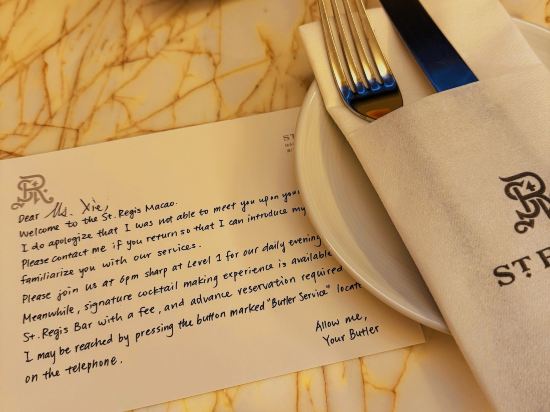 ST
Dear Ms. Xie,
Welcome to the St. Regis Macao.
I do apologize that I was not able to meet you upon your
Please contact me if you return so that I can introduce my
familiarize you with our services.
Please join us at 6pm sharp at Level 1 for our daily evening
Meanwhile, signature cocktail making experience is available
St. Regis Bar with a fee, and advance reservation required
I may be reached by pressing the button marked "Butler Service" locate
on the telephone.
Allow me,
Your Butler
ST.